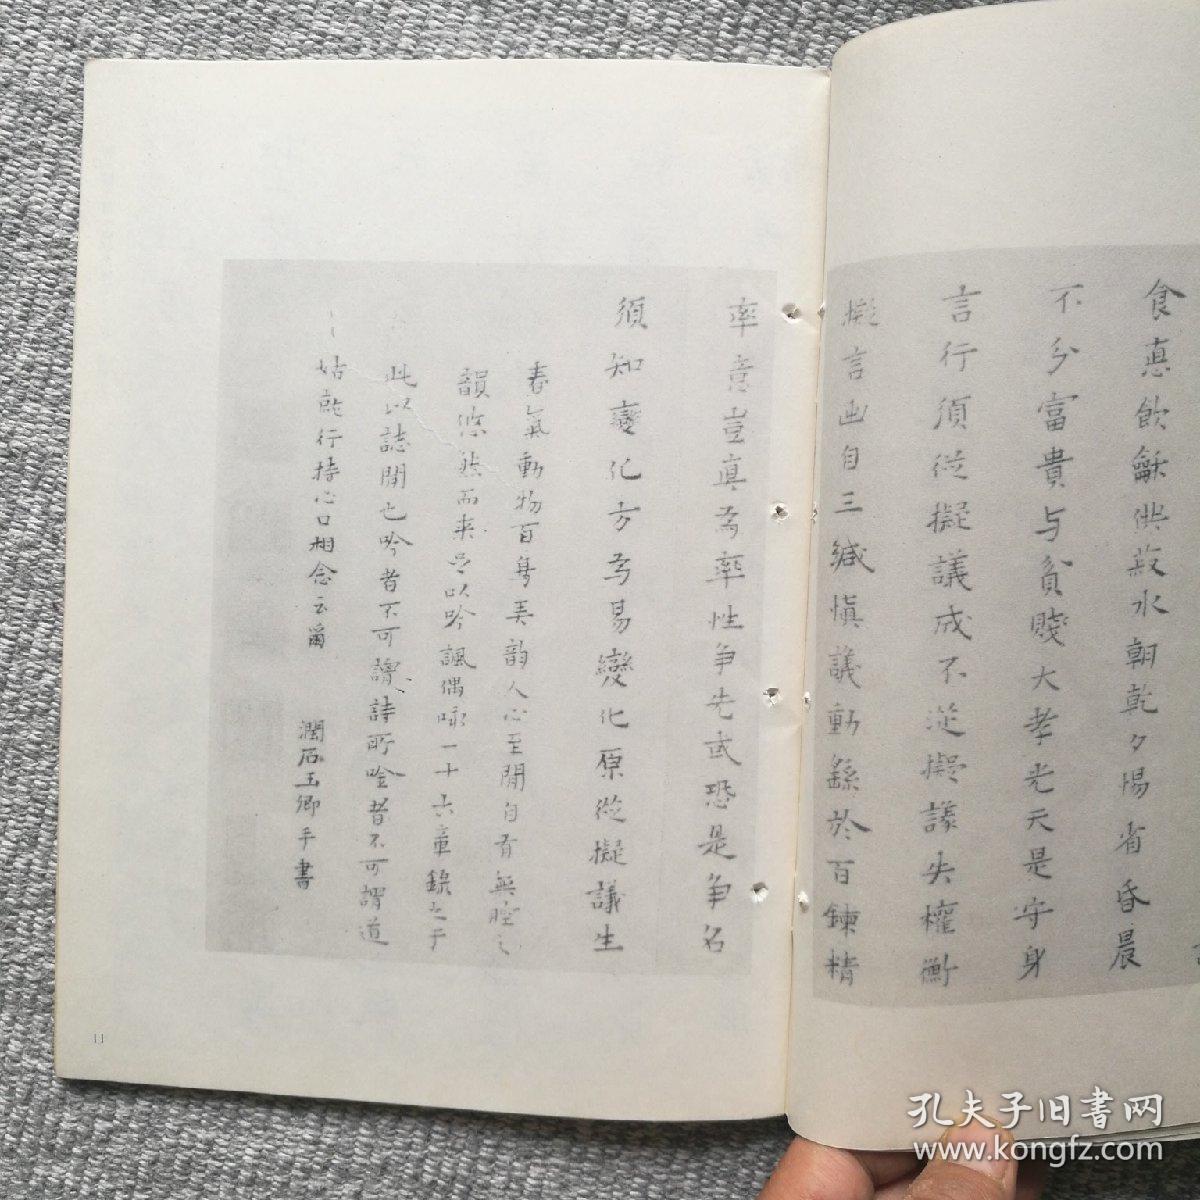 食悳飲龢供菽水朝乾夕惕省昏晨
不分富貴与貧賤大孝光天是守身
言行須從擬議成不從擬議失權衡
擬言由自三緘慎議動繇於百鍊精
率意豈真為率性爭先或恐是爭名
須知變化方為易變化原從擬議生
春氣動物百鳥弄韵人心至閒自有無腔之
韻悠然而来足以吟諷偶咏一十六章錄之于
此以誌閒也吟者不可謂詩所唫者不可謂道
姑就行持心口相念云爾
潤石玉卿手書
11
孔夫子旧書网
www.kongfz.com